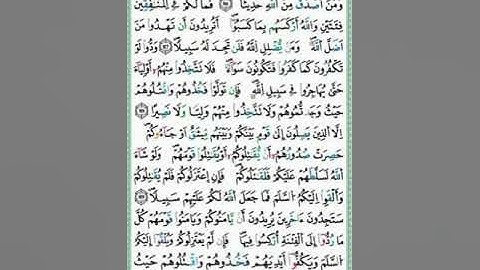 وَمَنْ أَصْدَقُ مِنَ اللَّهِ حَدِيثًا ۞ فَمَا لَكُمْ فِي الْمُنَافِقِينَ
فِئَتَيْنِ وَاللَّهُ أَرْكَسَهُم بِمَا كَسَبُوا أَتُرِيدُونَ أَن تَهْدُوا مَنْ
أَضَلَّ اللَّهُ وَمَن يُضْلِلِ اللَّهُ فَلَن تَجِدَ لَهُ سَبِيلًا وَدُّوا لَوْ
تَكْفُرُونَ كَمَا كَفَرُوا فَتَكُونُونَ سَوَاءً فَلَا تَتَّخِذُوا مِنْهُمْ أَوْلِيَاءَ
حَتَّى يُهَاجِرُوا فِي سَبِيلِ اللَّهِ فَإِن تَوَلَّوْا فَخُذُوهُمْ وَاقْتُلُوهُمْ
حَيْثُ وَجَدتُّمُوهُمْ وَلَا تَتَّخِذُوا مِنْهُمْ وَلِيًّا وَلَا نَصِيرًا
إِلَّا الَّذِينَ يَصِلُونَ إِلَى قَوْمٍ بَيْنَكُمْ وَبَيْنَهُم مِّيثَاقٌ أَوْ جَاءُوكُمْ
حَصِرَتْ صُدُورُهُمْ أَن يُقَاتِلُوكُمْ أَوْ يُقَاتِلُوا قَوْمَهُمْ وَلَوْ شَاءَ
اللَّهُ لَسَلَّطَهُمْ عَلَيْكُمْ فَلَقَاتَلُوكُمْ فَإِنِ اعْتَزَلُوكُمْ فَلَمْ يُقَاتِلُوكُمْ
وَأَلْقَوْا إِلَيْكُمُ السَّلَمَ فَمَا جَعَلَ اللَّهُ لَكُمْ عَلَيْهِمْ سَبِيلًا
سَتَجِدُونَ ءَاخَرِينَ يُرِيدُونَ أَن يَامَنُوكُمْ وَيَامَنُوا قَوْمَهُمْ كُلَّ
مَا رُدُّوا إِلَى الْفِتْنَةِ أُرْكِسُوا فِيهَا فَإِن لَّمْ يَعْتَزِلُوكُمْ وَيُلْقُوا إِلَيْكُمُ
السَّلَمَ وَيَكُفُّوا أَيْدِيَهُمْ فَخُذُوهُمْ وَاقْتُلُوهُمْ حَيْثُ